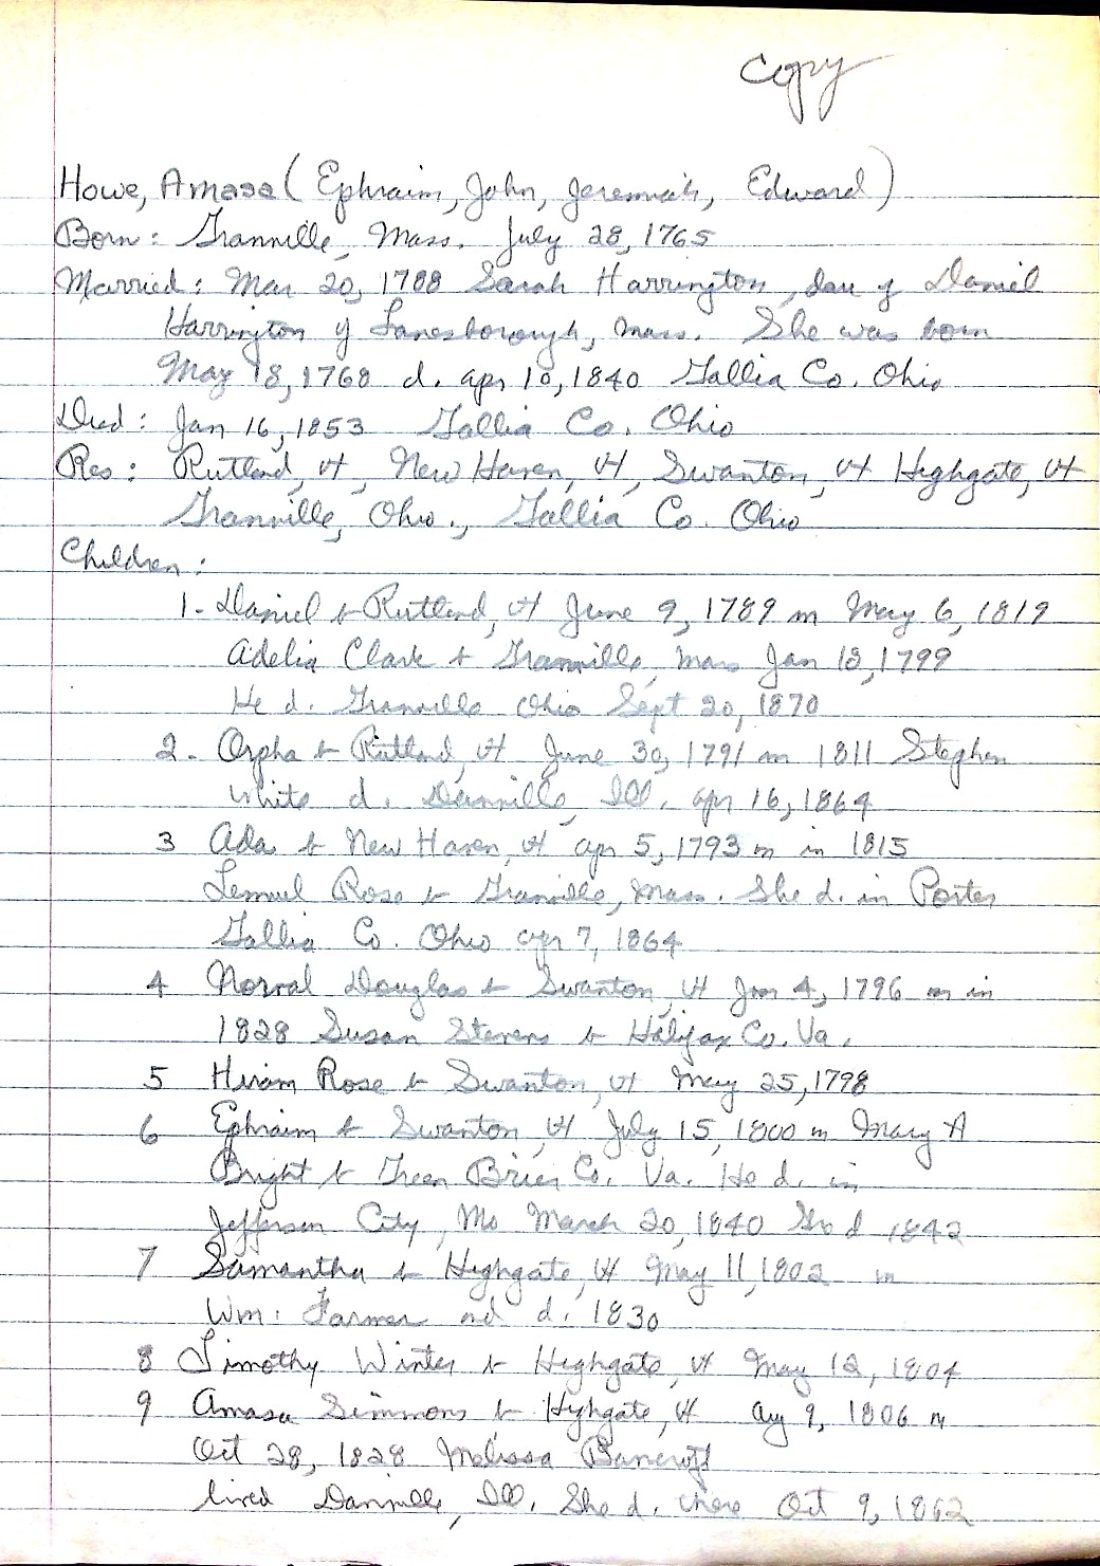 Copy
Howe, Amasa (Ephraim, John, Jeremiah, Edward)
Born: Granville, Mass. July 28, 1765
Married: Mar 20, 1788 Sarah Harrington, dau of Daniel
Harrington of Lanesborough, Mass. She was born
May 18, 1768 d. Apr 10, 1840 Gallia Co. Ohio
Died: Jan 16, 1853 Gallia Co. Ohio
Res: Rutland, Vt, New Haven, Vt, Swanton, Vt Highgate, Vt
Granville, Ohio., Gallia Co. Ohio
Children:
1- Daniel b Rutland, Vt June 9, 1789 m May 6, 1819
Adelia Clark b Granville, Mass Jan 13, 1799
He d. Granville Ohio Sept 20, 1870
2- Orpha b Rutland, Vt June 30, 1791 m 1811 Stephen
White d. Danville, Ill. Apr 16, 1864
3 Ada b New Haven, Vt Apr 5, 1793 m in 1815
Lemuel Rose b Granville, Mass. She d. in Porter
Gallia Co. Ohio Apr 7, 1864
4 Norval Douglas b Swanton, Vt Jan 4, 1796 m in
1828 Susan Stevens b Halifax Co. Va.
5 Hiram Rose b Swanton, Vt May 25, 1798
6 Ephraim b Swanton, Vt July 15, 1800 m Mary A
Bright b Green Brier Co. Va. He d. in
Jefferson City, Mo March 20, 1840 She d 1842
7 Samantha b Highgate, Vt May 11, 1802 m
Wm. Farmer and d. 1830
8 Timothy Winter b Highgate, Vt May 12, 1804
9 Amasa Simmons b Highgate, Vt Aug 9, 1806 m
Oct 28, 1828 Melissa Bancroft
lived Danville, Ill. She d. there Oct 9, 1862